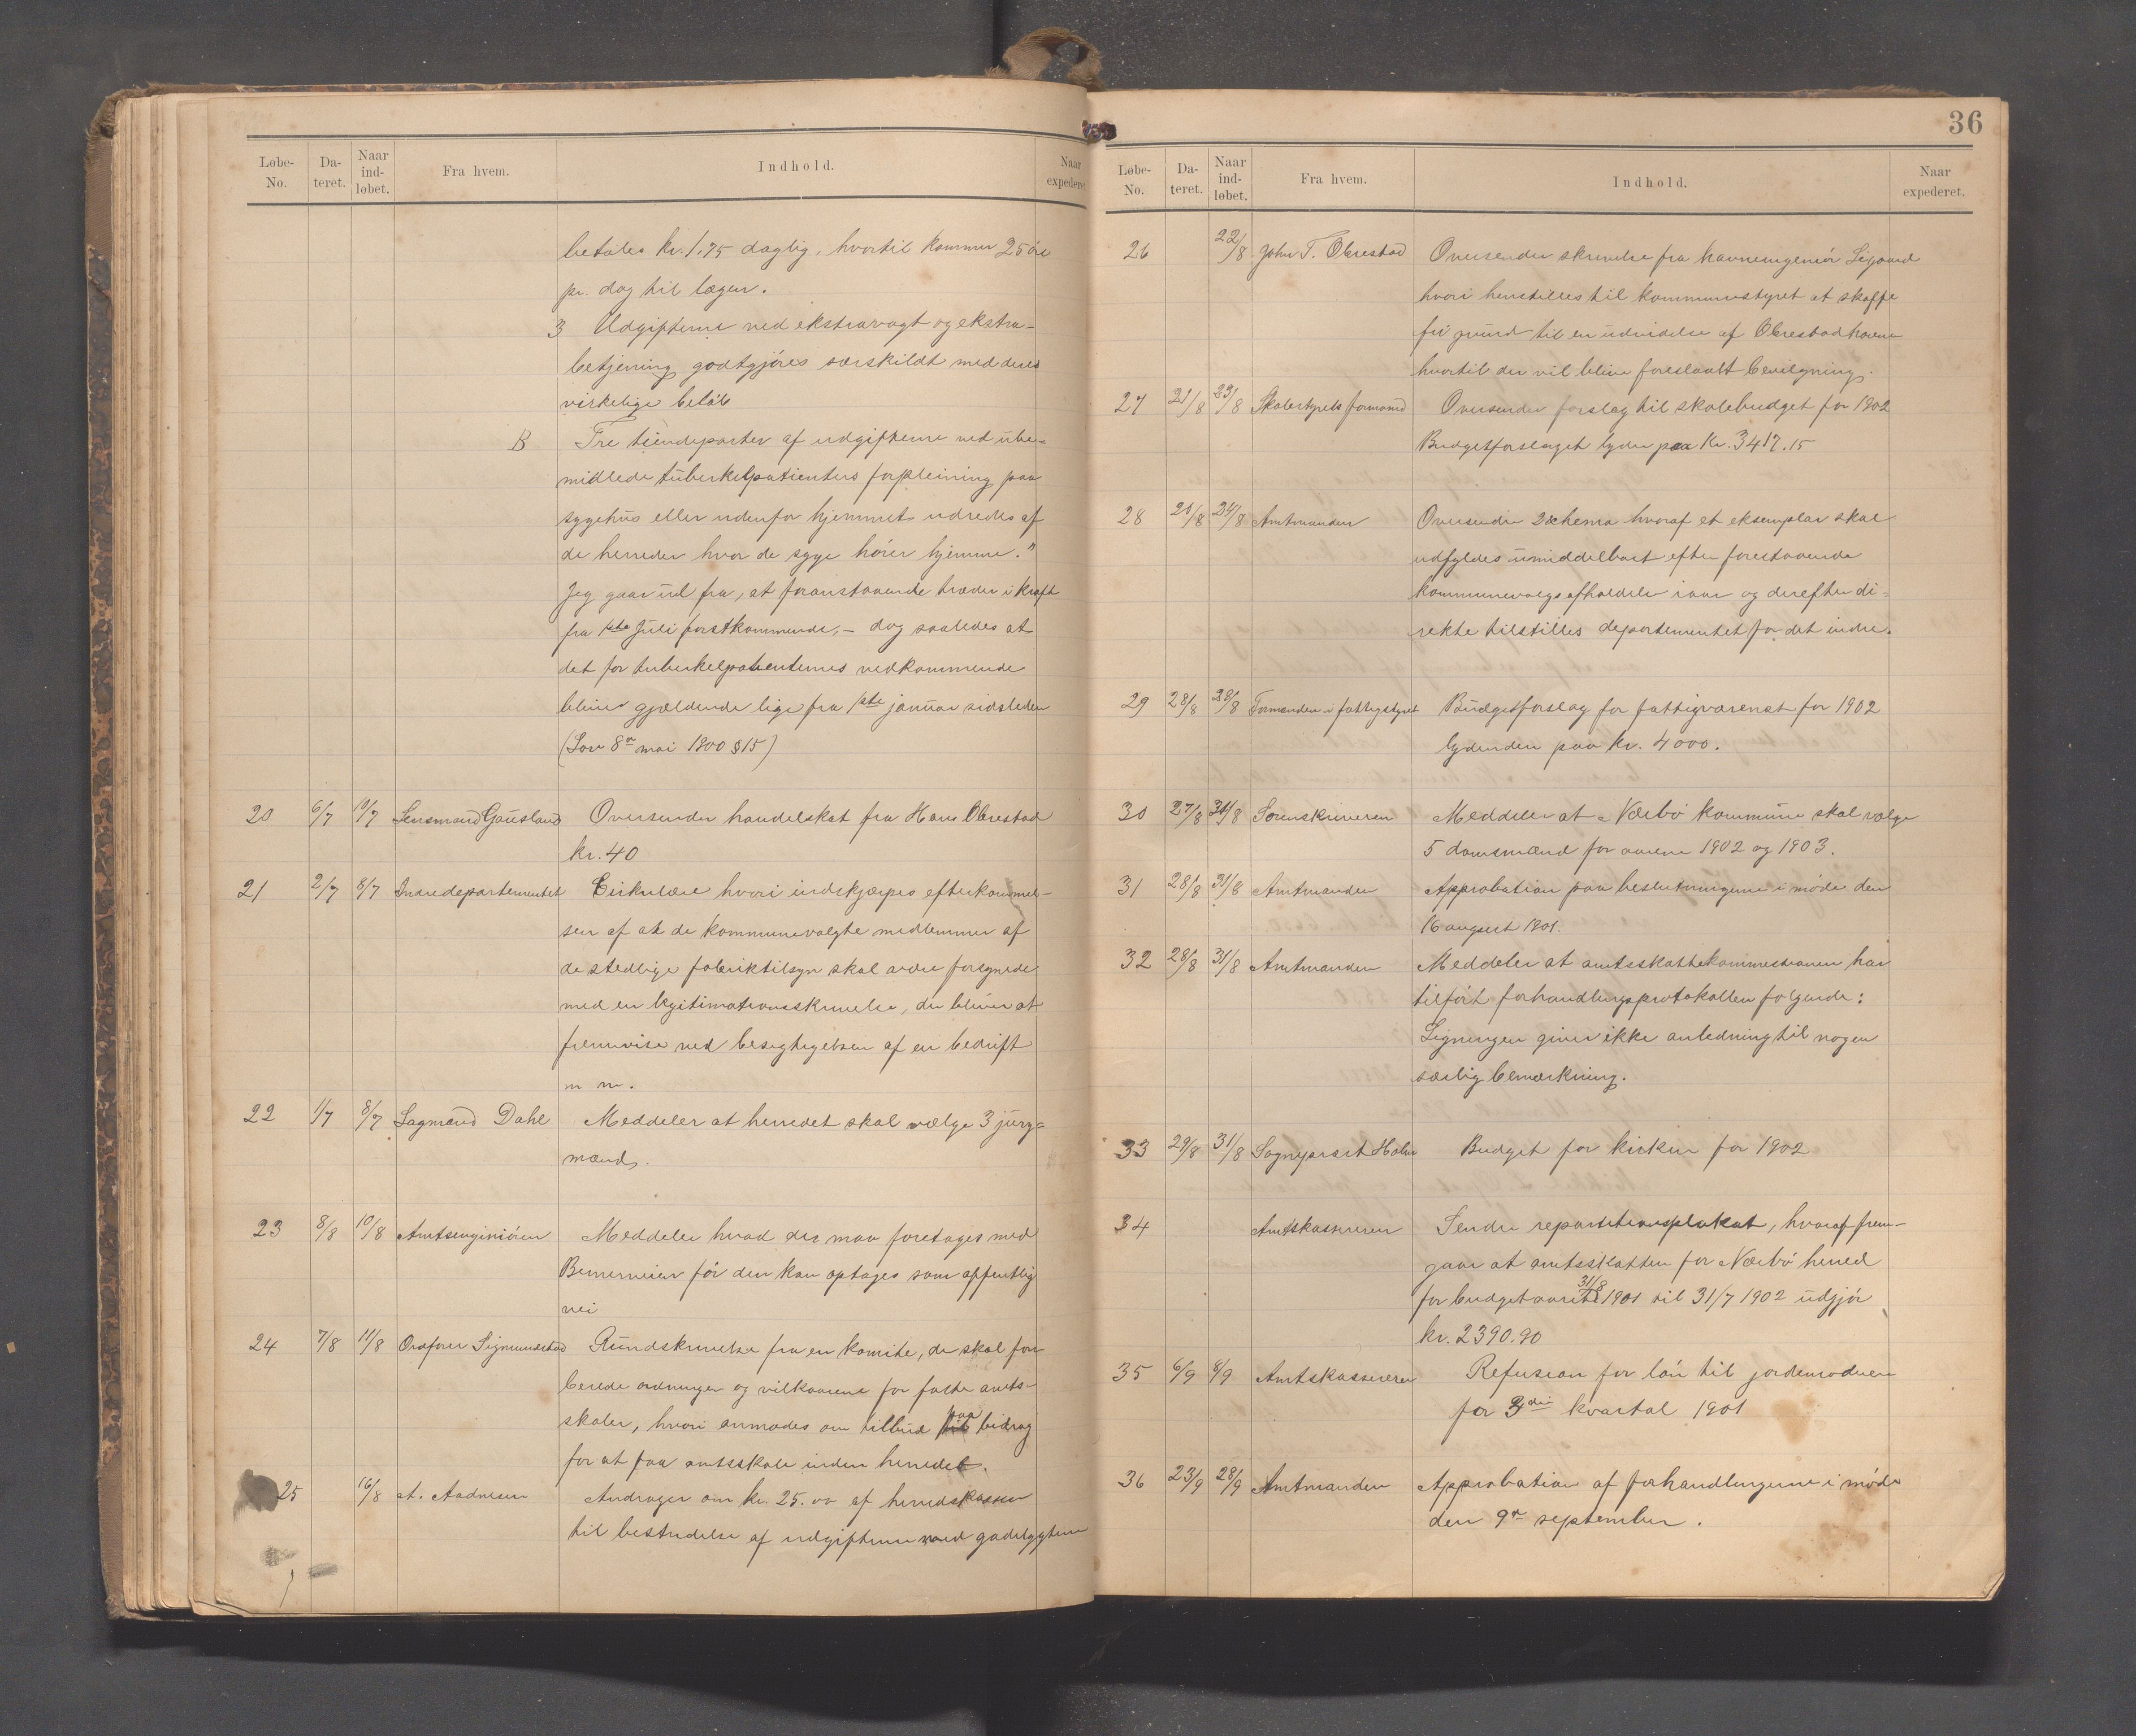 Løbe-No. Da-teret. Naar ind-løbet. Fra hvem. Indhold. Naar expederet.
betales kr. 1,75 daglig, hvortil kommer 25 öre
pr. dag til lægen.
3 Udgifterne ved ekstravagt og ekstra-
betjening godtgjöres særskildt med deres
virkelige belöb
B Tre tiendeparter af udgifterne ved ube-
midlede tuberkelpatienters forpleining paa
sygehus eller udenfor hjemmet udredes af
de herreder hvor de syge hörer hjemme."
Jeg gaar ud fra, at foranstaaende træder i kraft
fra 1ste Juli förstkommende, – dog saaledes at
det for tuberkelpatienternes vedkommende
bliver gjældende lige fra 1ste januar sidstleden
(Lov 8de mai 1900 § 15)
20 6/7 10/7 Lensmand Gausland Oversender handelskat fra Hans Obrestad
kr. 40
21 2/7 8/7 Indredepartementet Cirkulære hvori indskjærpes efterkommel-
sen af at de kommunevalgte medlemmer af
de stedlige fabriktilsyn skal være forsynede
med en legitimationsskrivelse, der bliver at
fremvise ved besigtigelsen af en bedrift
m m.
22 1/7 8/7 Lagmand Dahl Meddeler at herredet skal vælge 3 jury-
mænd.
23 8/8 10/8 Amtsingeniören Meddeler hvad der maa foretages med
før den kan optages som offentlig
vei
24 7/8 11/8 Ordförer Sigmundstad Rundskrivelse fra en komite, der skal for-
berede ordningen og vilkaarene for faste amts-
skoler, hvori anmodes om tilbud paa bidrag
for at faa amtsskole inden herredet.
25 16/8 A. Aadnesen Andrager om kr. 25.00 af herredskassen
til bestridelse af udgifterne ved gadelygterne
36
Løbe-No. Da-teret. Naar ind-løbet. Fra hvem. Indhold. Naar expederet.
26 22/8 John T. Obrestad Oversender skrivelse fra havneingeniör
hvori henstilles til kommunestyret at skaffe
fri grund til en udvidelse af Obrestadhavn
hvortil der vil blive foreslaaet bevilgning.
27 21/8 23/8 Skolestyrets formand Oversender forslag til skolebudget for 1902
Budgetforslaget lyder paa Kr. 3417.15
28 21/8 24/8 Amtmanden Oversender 2 schema hvoraf et eksemplar skal
udfyldes umiddelbart efter forestaaende
kommunevalgs afholdelse iaar og derefter di-
rekte tilstilles departementet for det indre.
29 28/8 28/8 Formanden i fattigstyret Budgetforslag for fattigvæsenet for 1902
lydende paa kr. 4000.
30 27/8 31/8 Sorenskriveren Meddeler at Nærbö kommune skal vælge
5 domsmænd for aarene 1902 og 1903.
31 28/8 31/8 Amtmanden Approbation paa beslutningerne i möde den
16 august 1901.
32 28/8 31/8 Amtmanden Meddeler at amtsskattekommissionen har
tilfört forhandlingsprotokollen folgende:
Ligningen giver ikke anledning til nogen
særlig bemærkning.
33 29/8 31/8 Sogneprest Holm Budget for kirken for 1902
34 Amtskassereren Sender repartitionsplakat, hvoraf frem-
gaar at amtsskatten for Nærbö herred
for budgetaaret 31/8 1901 til 31/7 1902 udgjör
kr. 2390.90
35 6/9 8/9 Amtskassereren Refusion for lön til jordemoderen
for 3die kvartal 1901
36 23/9 28/9 Amtmanden Approbation af forhandlingerne i möde
den 9de september.